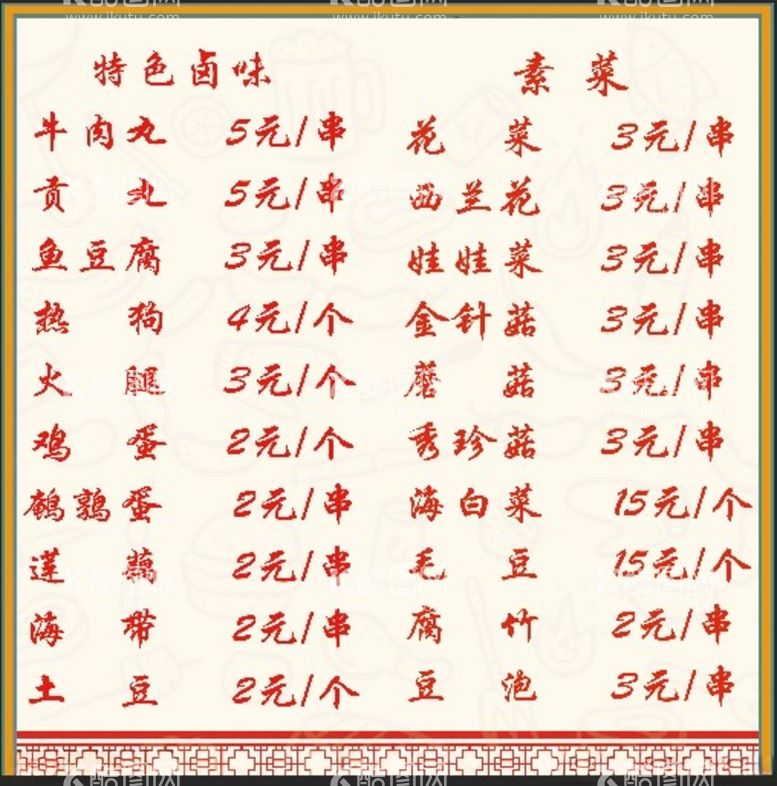 特色卤味
牛肉丸 5元/串
贡丸 5元/串
鱼豆腐 3元/串
热狗 4元/个
火腿 3元/个
鸡蛋 2元/个
鹌鹑蛋 2元/串
莲藕 2元/串
海带 2元/串
土豆 2元/个
素菜
花菜 3元/串
西兰花 3元/串
娃娃菜 3元/串
金针菇 3元/串
蘑菇 3元/串
秀珍菇 3元/串
海白菜 15元/个
毛豆 15元/个
腐竹 2元/串
豆泡 3元/串